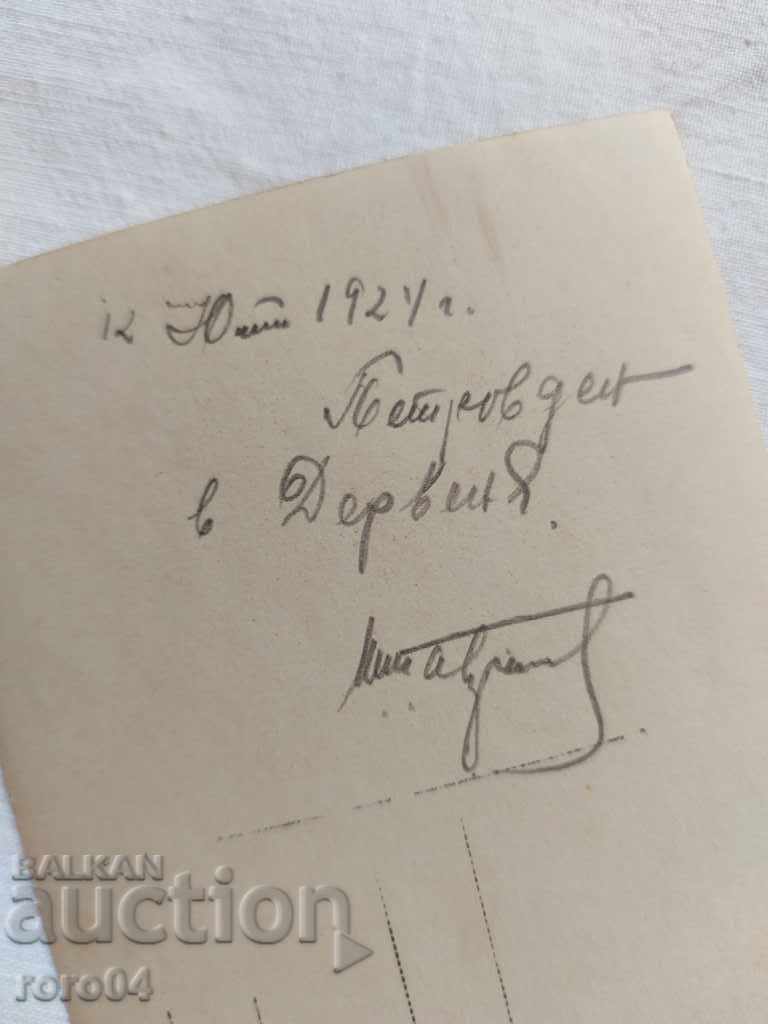 12 Юлий 1924 г.
Петровден
в Дервентъ.
BALKAN
auction
roro04